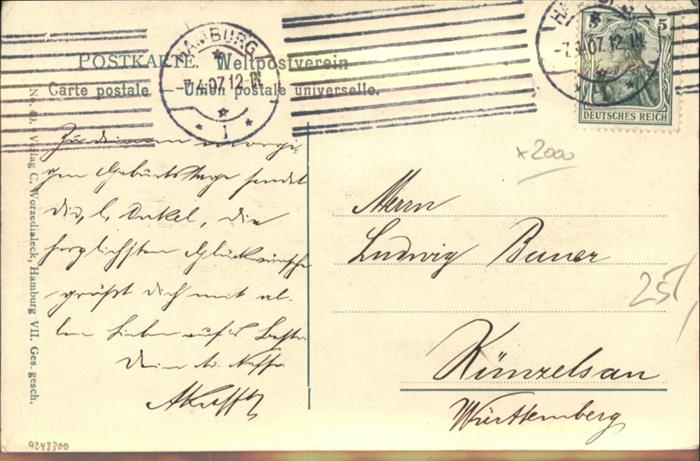 POSTKARTE. Weltpostverein
Carte postale — Union postale universelle.
HAMBURG
-7.4.07.12-1N.
* 1 *
-7.4.07.12-1N.
5
DEUTSCHES REICH
No. Verlag C. Worzedialeck, Hamburg VII. Ges. gesch.
Zu deinem morgi-
gen Geburtstage sendet
Dir, l. Onkel, die
herzlichsten Glückwünsche
grüßt Dich mit al-
len Lieben aufs Beste
Dein tr. Neffe
x2000
Herrn
Ludwig Bauer
Künzelsau
Württemberg
25/
9243300